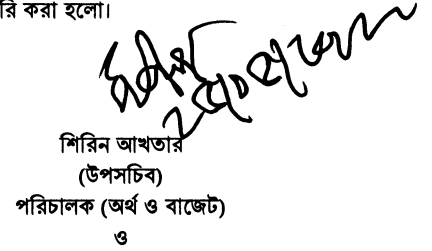 রি করা হলো।
শিরিন আখতার
(উপসচিব)
পরিচালক (অর্থ ও বাজেট)
ও